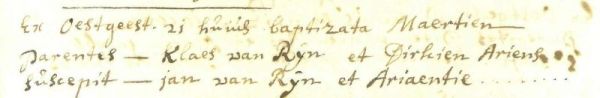 Ex Oestgeest. 21 huius baptizata Maertien
parentes — Klaes van Ryn et Dirkien Ariens
suscepit — jan van Ryn et Ariaentie ........